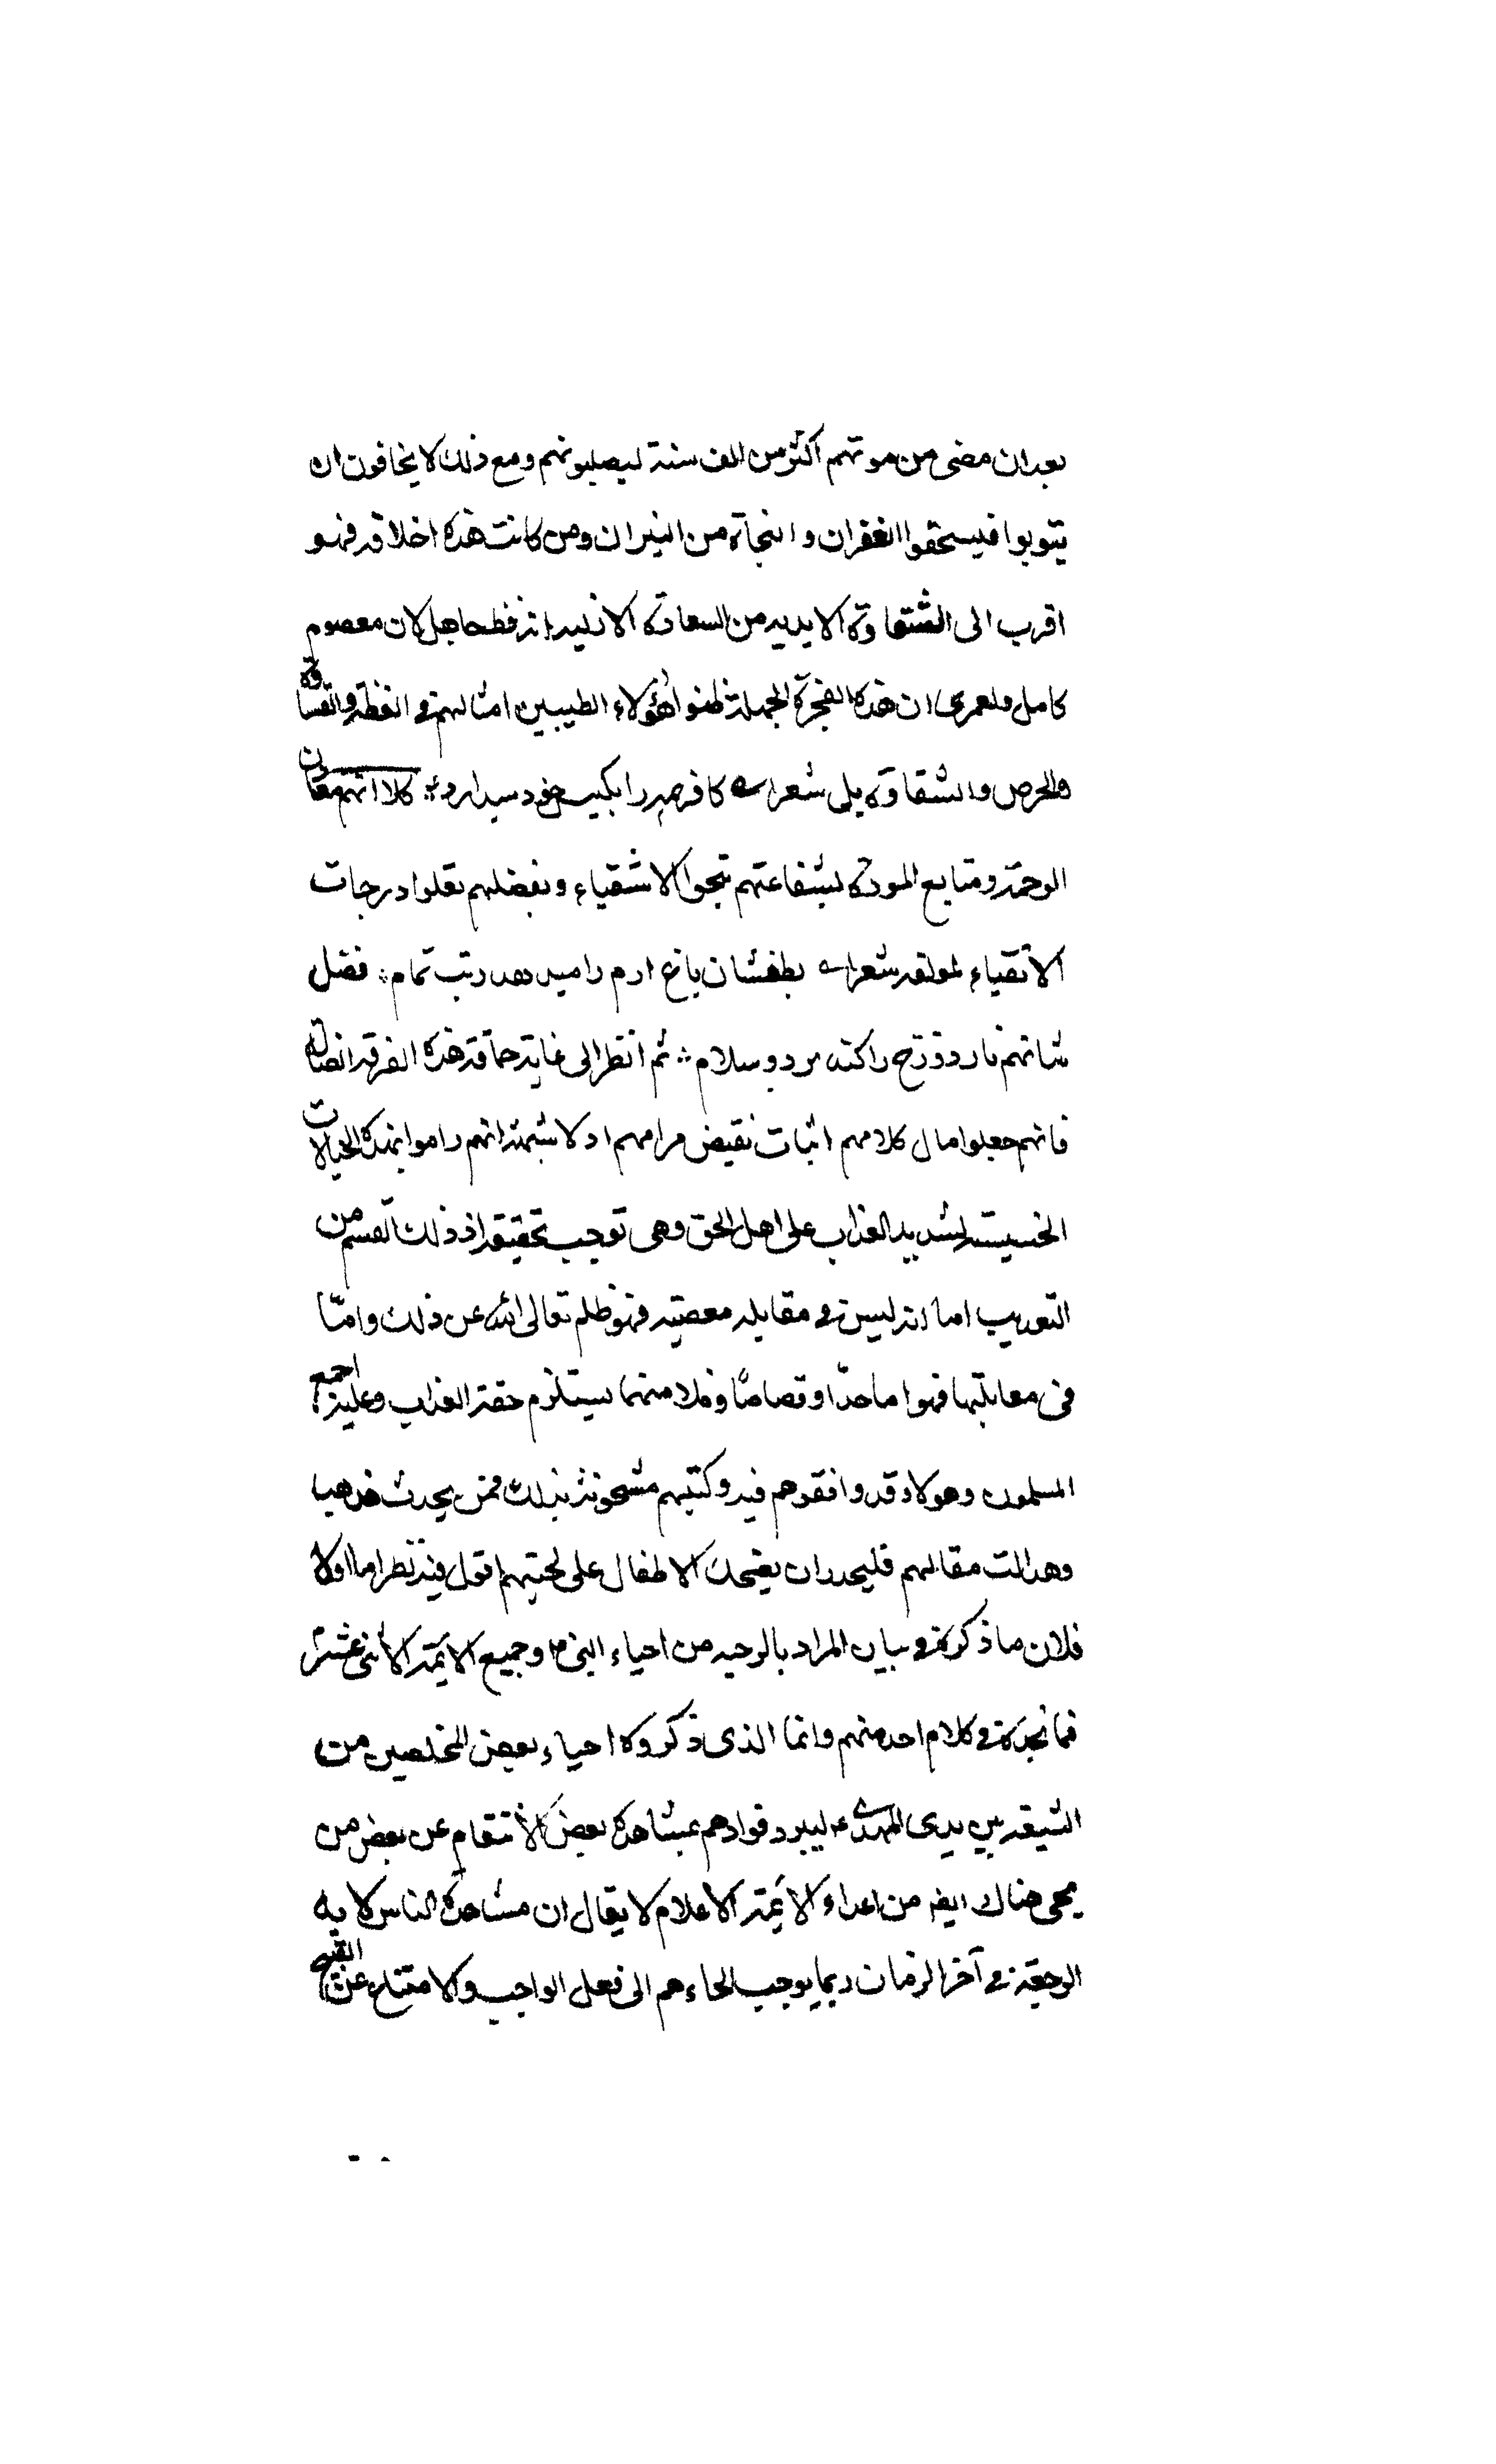 بعد ان مضى من موتهم اكثر من الف سنة ليصلبونهم ومع ذلك لا يخافون ان
يتوبوا فيستحقوا الغفران والنجاة من النيران ومن كانت هذه اخلاقه فهو
اقرب الى الشقاوة الابديه من السعادة الازليه انه فظ جاهل لا ن معصوم
كامل ولعمرى ان هذه الفجرة الجهلة ظنوا هؤلاء الطيبين امثالهم فى الغظة والقساوة
والحرص والشقاوة بلى شعر كافر همه را بكيش خود پندارد كلا انهم معادن
الرحمة ومنابع المودة بشفاعتهم تنجوا الاشقياء وبفضلهم تعلوا درجات
الاتقياء لمولفه شعر لطفشان باغ ارم را ميدهد زيب تمام فضل
شانهم نار دوزخ را كند برد و سلام ثم انظر الى غاية حماقة هذه الفرقه الضالة
فانهم جعلوا مال كلامهم اثبات نقيض مرامهم اد لا شبهة انهم راموا بهذه الخيالات
الخسيسة تشديد العذاب على اهل الحق وهى توجب تخفيفه اذ ذلك القسم من
التعذيب اما انه ليس فى مقابله معصيته فهو ظلم تعالى الله عن ذلك وامّا
فى مقابلتها فهو اما حدّا وقصاصًا وكلا منهما يستلزم خفة العذاب وعليه اجمع
المسلمون وهولاء قد وافقوهم فيه وكتبهم مشحونة بذلك فمن يحدث مذهبا
وهذا لت مقالهم فليحذر ان يضحك الاطفال على لحيتهم اقول فيه نظر اما اولا
فلان ما ذكره فى بيان المراد بالرجعه من احياء النبى ص وجميع الائمة الاثنى عشر
فما نجده فى كلام احد منهم وانما الذى ذكروه احياء بعض المخلصين من
الشيعة بين يدى المهدى ع ليبرد فوادهم بمشاهدة بعض الانتقام عن بعض من
يحيى هناك ايضا من اعداء الائمة الاعلام لا يقال ان مشاهدة الناس لاية
الرجعة فى آخر الزمان ربما يوجب الجاءهم الى فعل الواجب والامتناع عن القبيح